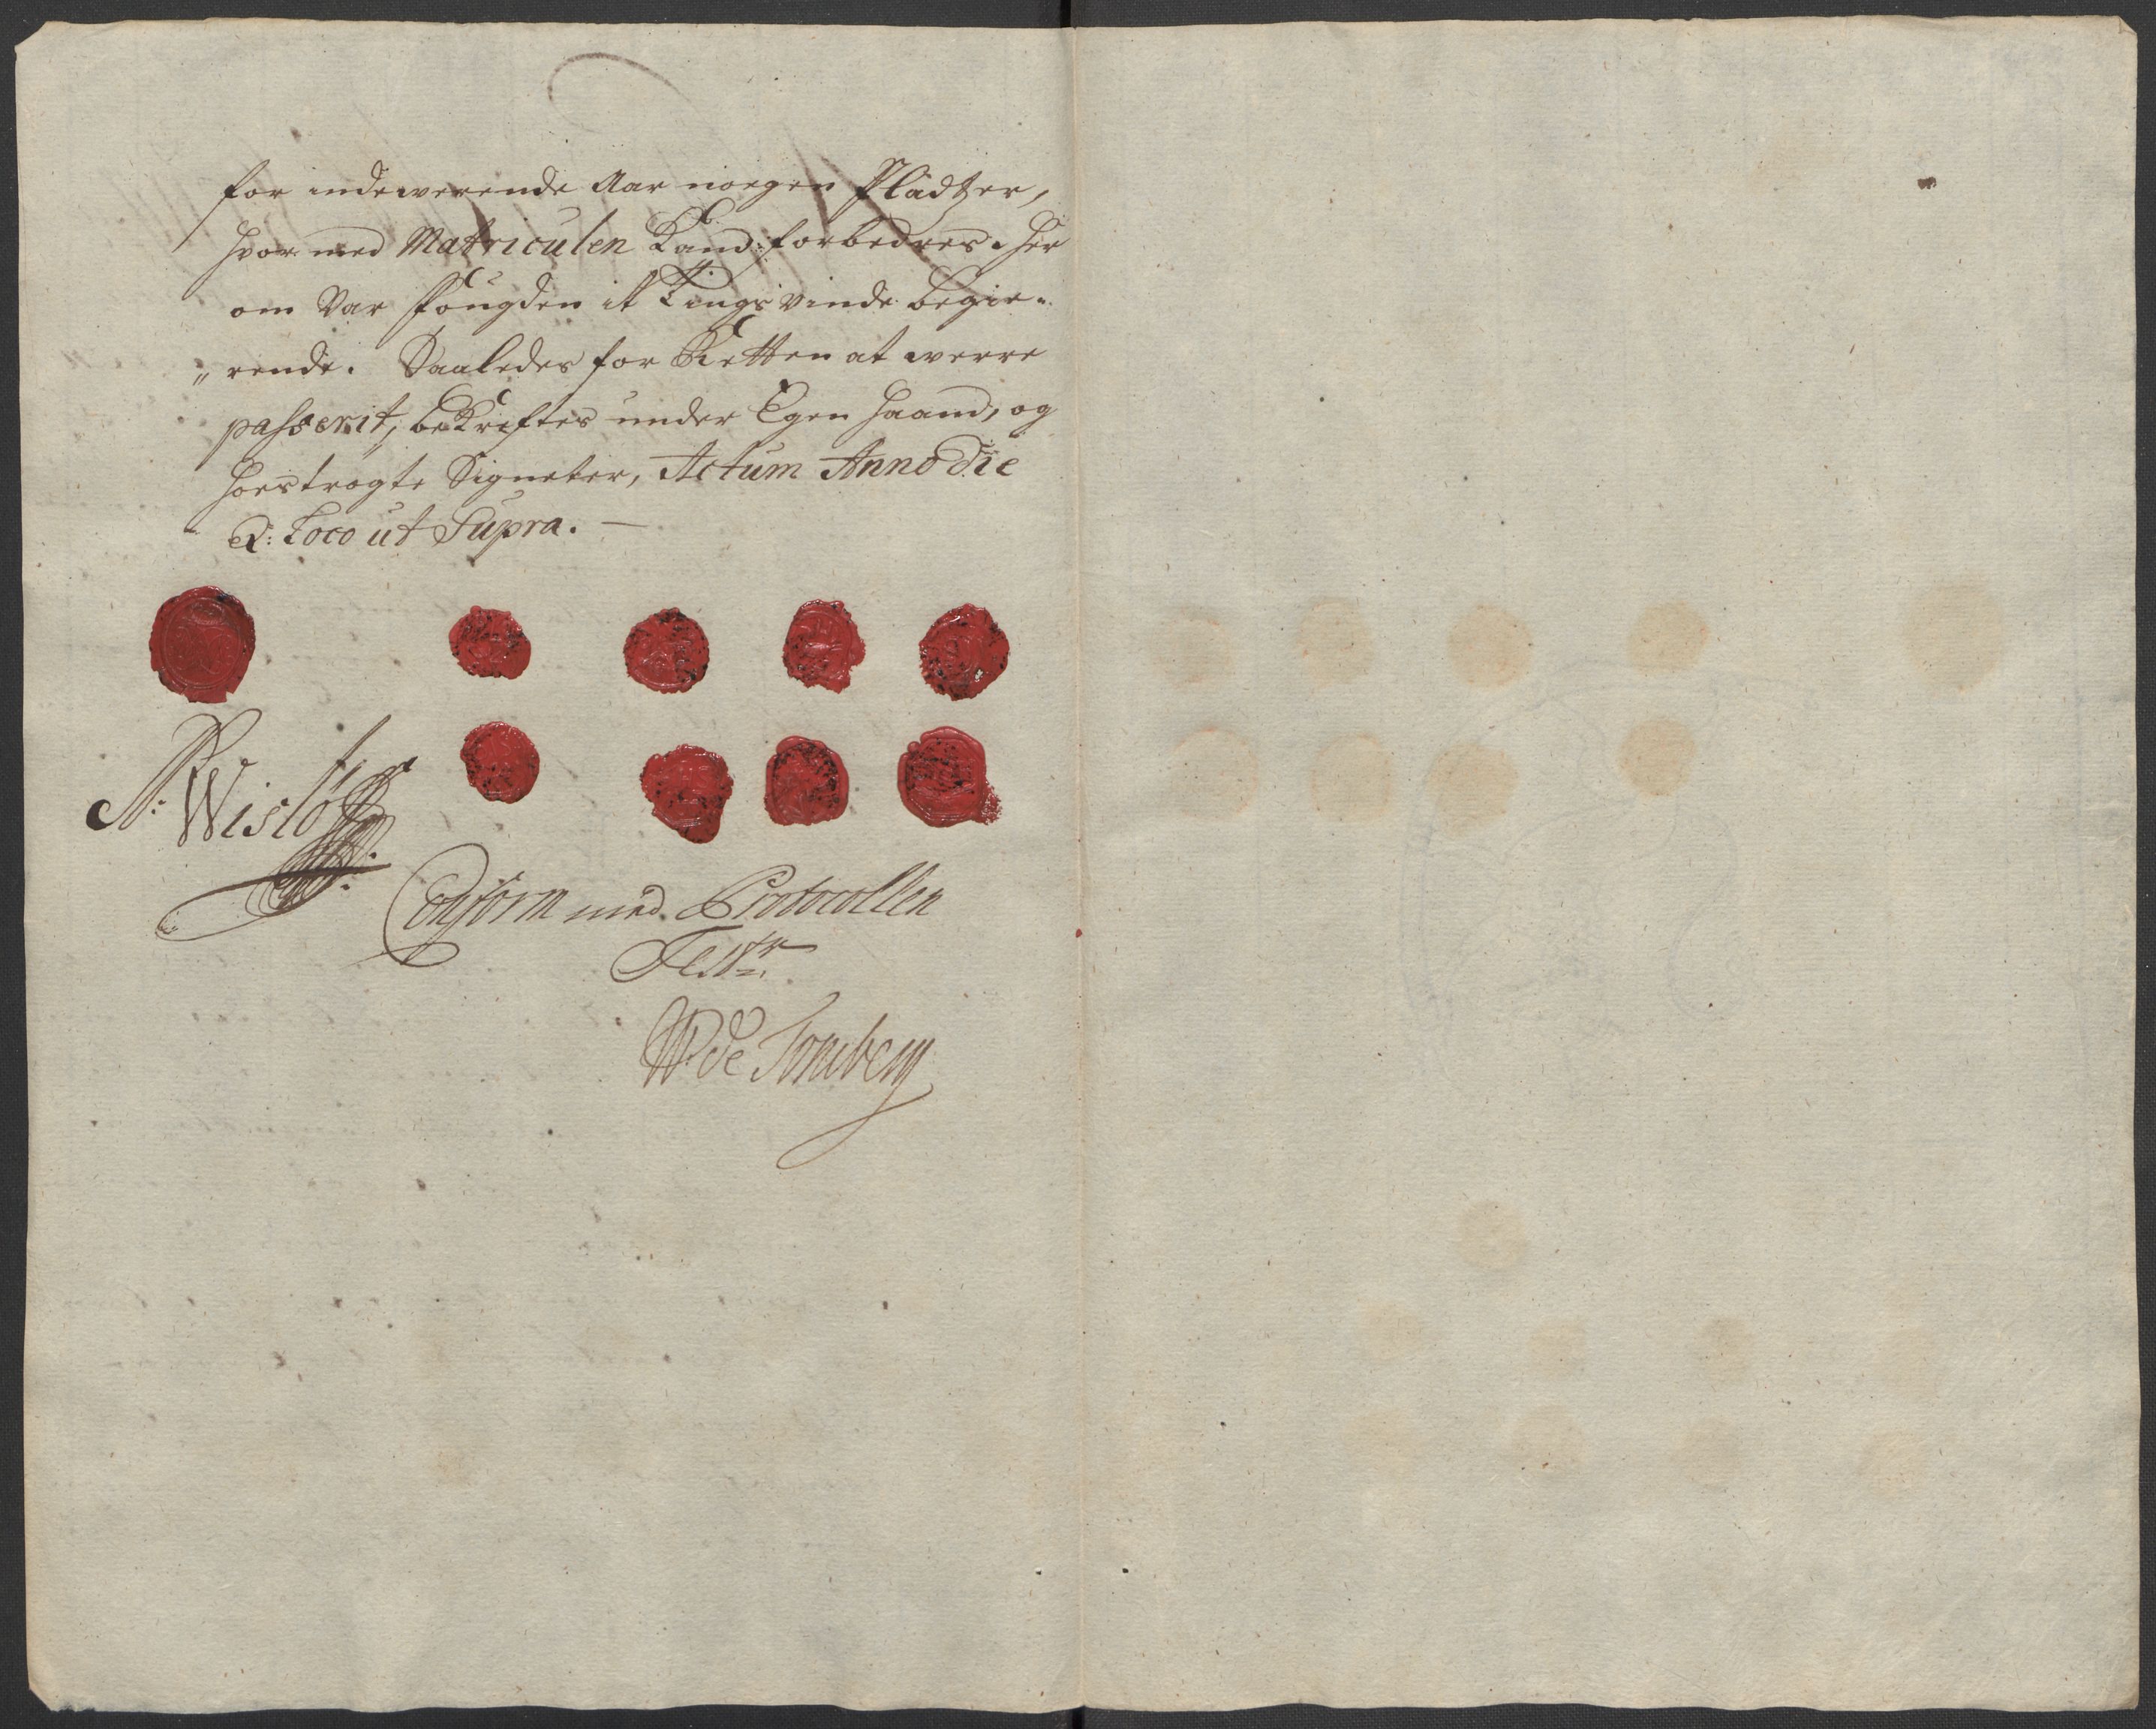 for indeværende Aar noegen Pladtzer,
hvor med Matriculen Kand forbedres. her
om Var Fougden it Tings vinde begie„
„rende. Saaledes for Retten at werre
passerit, bekreftes under Egen haand, og
hoestrøgte Signeter, Actum Anno die
& Loco ut Supra. —
P: Wisløff
Conform med Protocollen
Test:
W: de Tonsberg